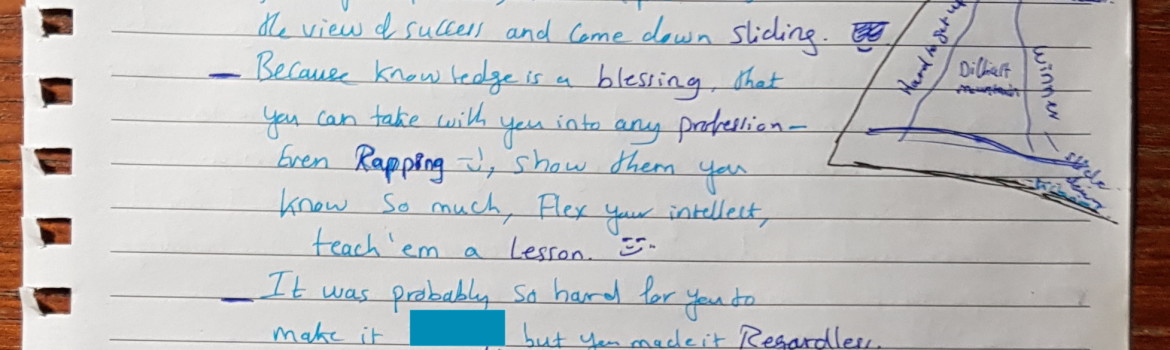 the view of success and come down sliding.
- Because knowledge is a blessing, that
you can take with you into any profession -
Even Rapping :), show them you
know so much, Flex your intellect,
teach 'em a Lesson.
- It was probably so hard for you to
make it but you made it Regardless.
Hard to get up
mountain
winner - slide